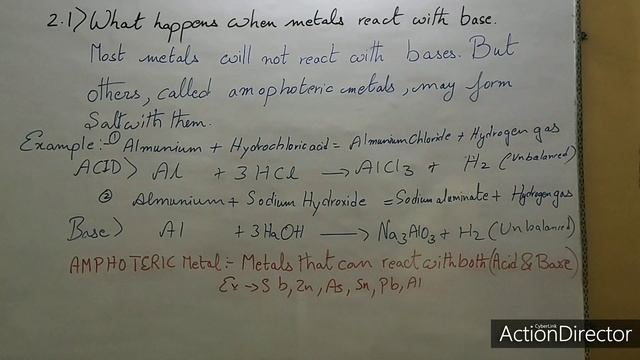 2.1) What happens when metals react with base.
Most metals will not react with bases. But
others, called amophoteric metals, may form
Salt with them.
Example:- ① Almunium + Hydrochloric acid = Almunium Chloride + Hydrogen gas
ACID> Al + 3 HCl → AlCl3 + H2 (Unbalanced)
② Almunium + Sodium Hydroxide = Sodium aluminate + Hydrogen gas
Base> Al + 3 NaOH → Na3AlO3 + H2 (Unbalanced)
AMPHOTERIC Metal:- Metals that can react with both (Acid & Base)
Ex → Sb, Zn, As, Sn, Pb, Al
CyberLink
ActionDirector